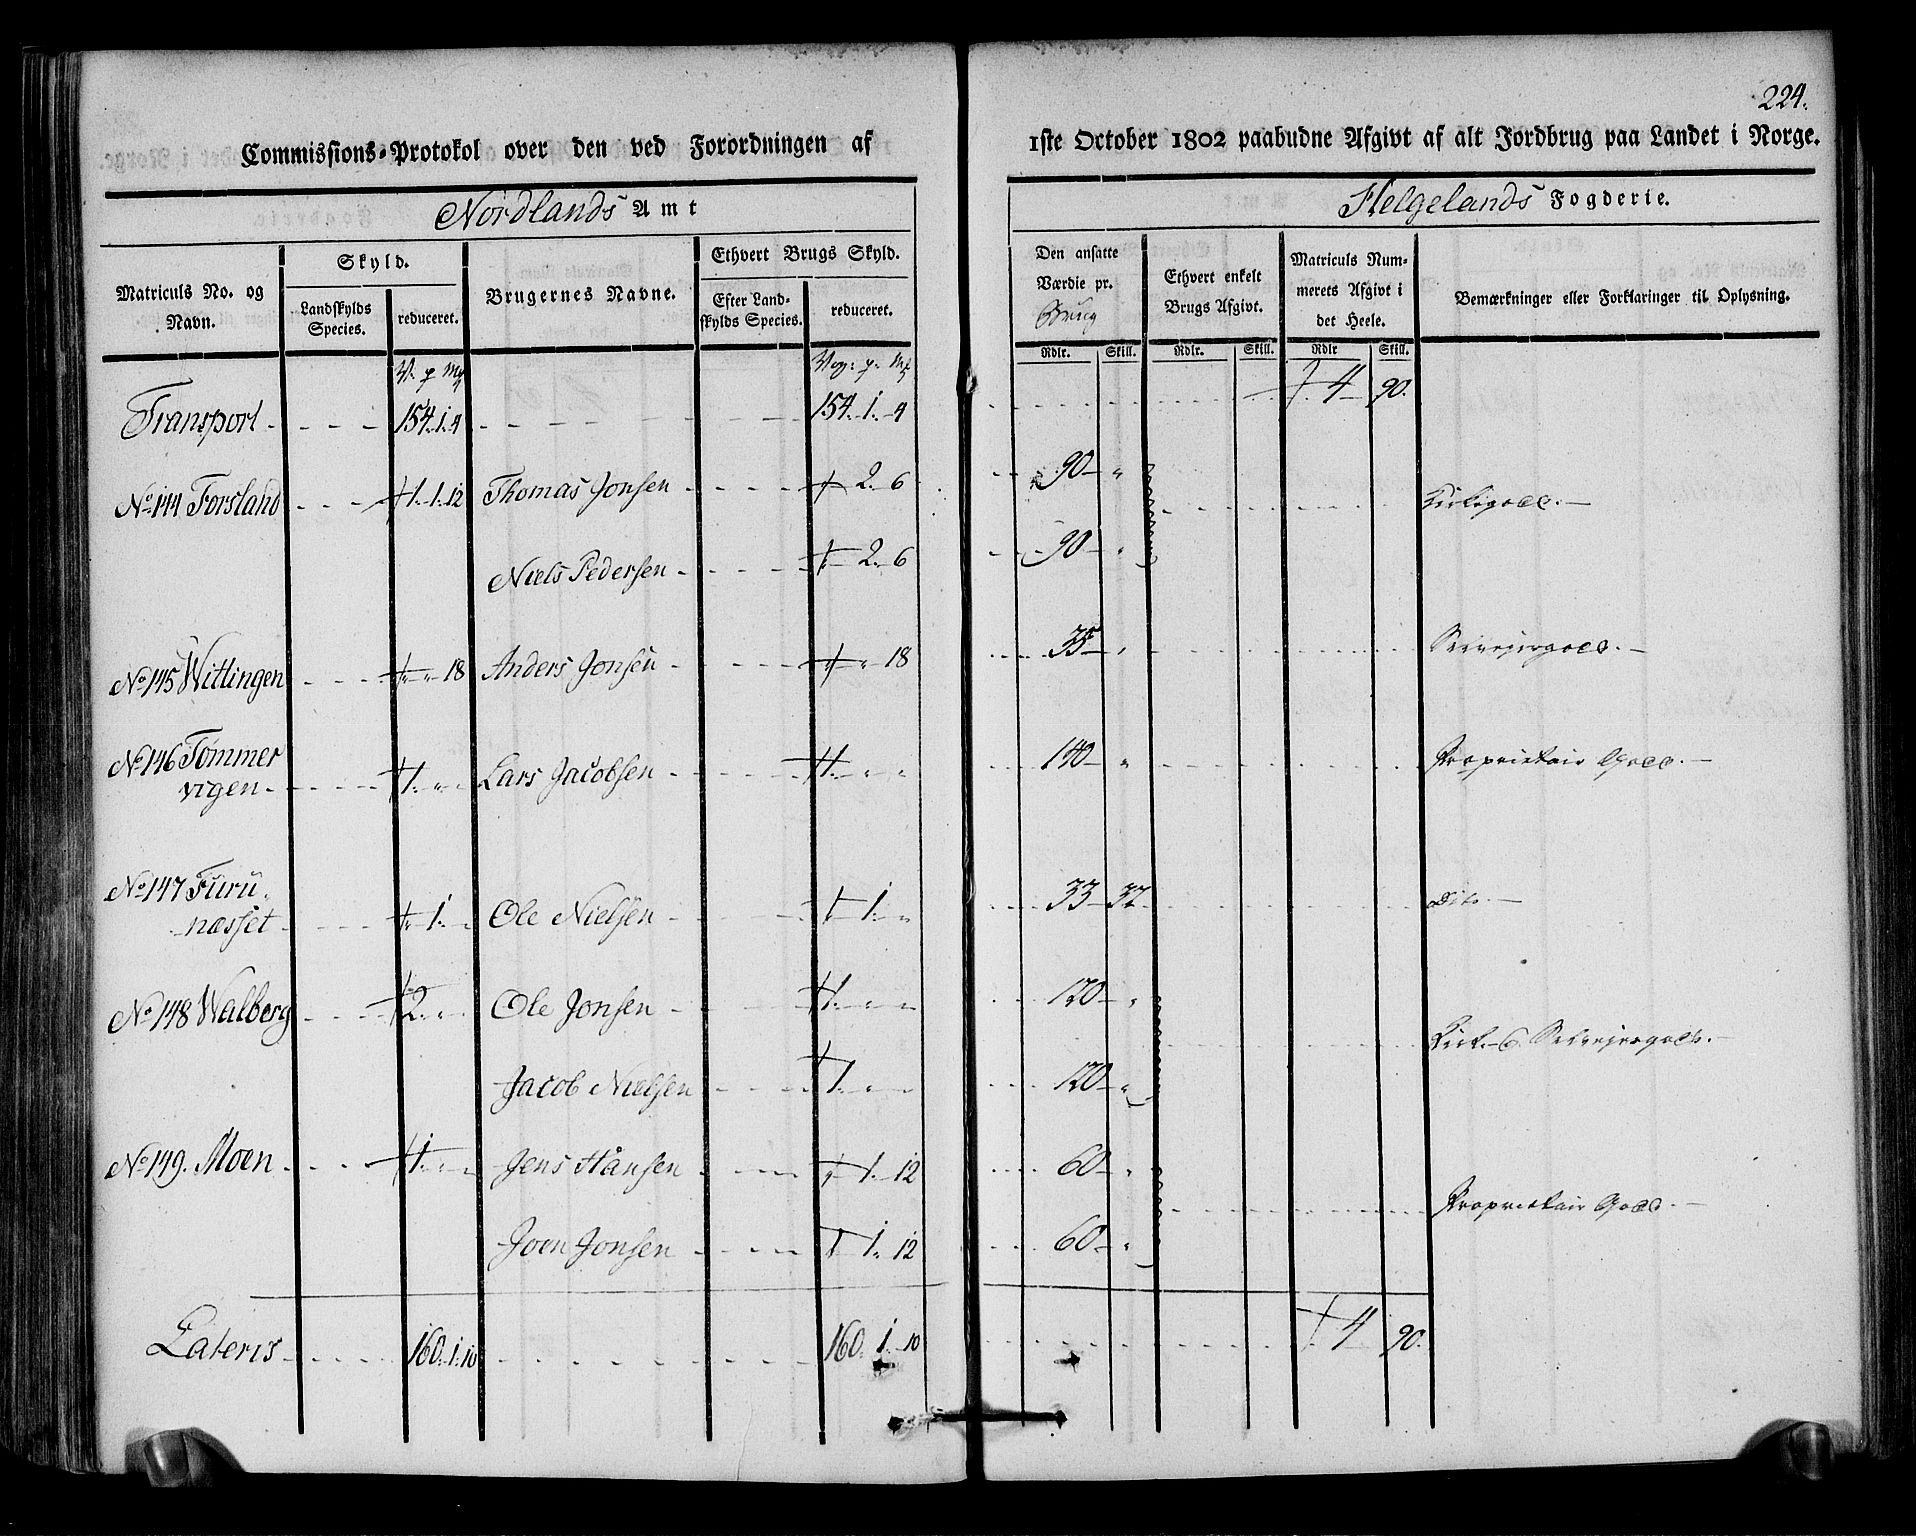 224.
Commissions-Protokol over den ved Forordningen af 1ste October 1802 paabudne Afgivt af alt Jordbrug paa Landet i Norge.
Nordlands Amt
Helgelands Fogderie.
Matriculs No. og Navn.
Skyld.
Landskylds Species.
reduceret.
Brugernes Navne.
Ethvert Brugs Skyld.
Efter Landskylds Species.
reduceret.
Den ansatte Værdie pr. Brug
Ethvert enkelt Brugs Afgivt.
Matriculs Nummerets Afgivt i det Heele.
Bemærkninger eller Forklaringer til Oplysning.
Rdlr. Skill. Rdlr. Skill. Rdlr Skill.
V. p Mk Vog: p. Mk
Transport 154. 1. 4 154. 1. 4 4 90.
No 144 Forsland 1. 1. 12 Thomas Jonsen 2. 6 90 " Kirkegods.
Niels Pedersen 2. 6 90 "
No 145 Wittingen " " 18 Anders Jonsen " " 18 35 " Selvejergods.
No 146 Tømmer
vigen 1. " " Lars Jacobsen 1. " " 140 " Proprietair Gods.
No 147 Furu
næsset 1. " Ole Nielsen 1. " 33 32 Dito.
No 148 Walberg 2. " " Ole Jonsen 1. " " 120 " Kirke- & Selvejergods.
Jacob Nielsen 1. " " 120 "
No 149. Moen 1. " " Jens Hansen 1. 12 60 " Proprietair Gods.
Joen Jonsen 1. 12 60 "
Lateris 160. 1. 10 160. 1. 10 4 90.